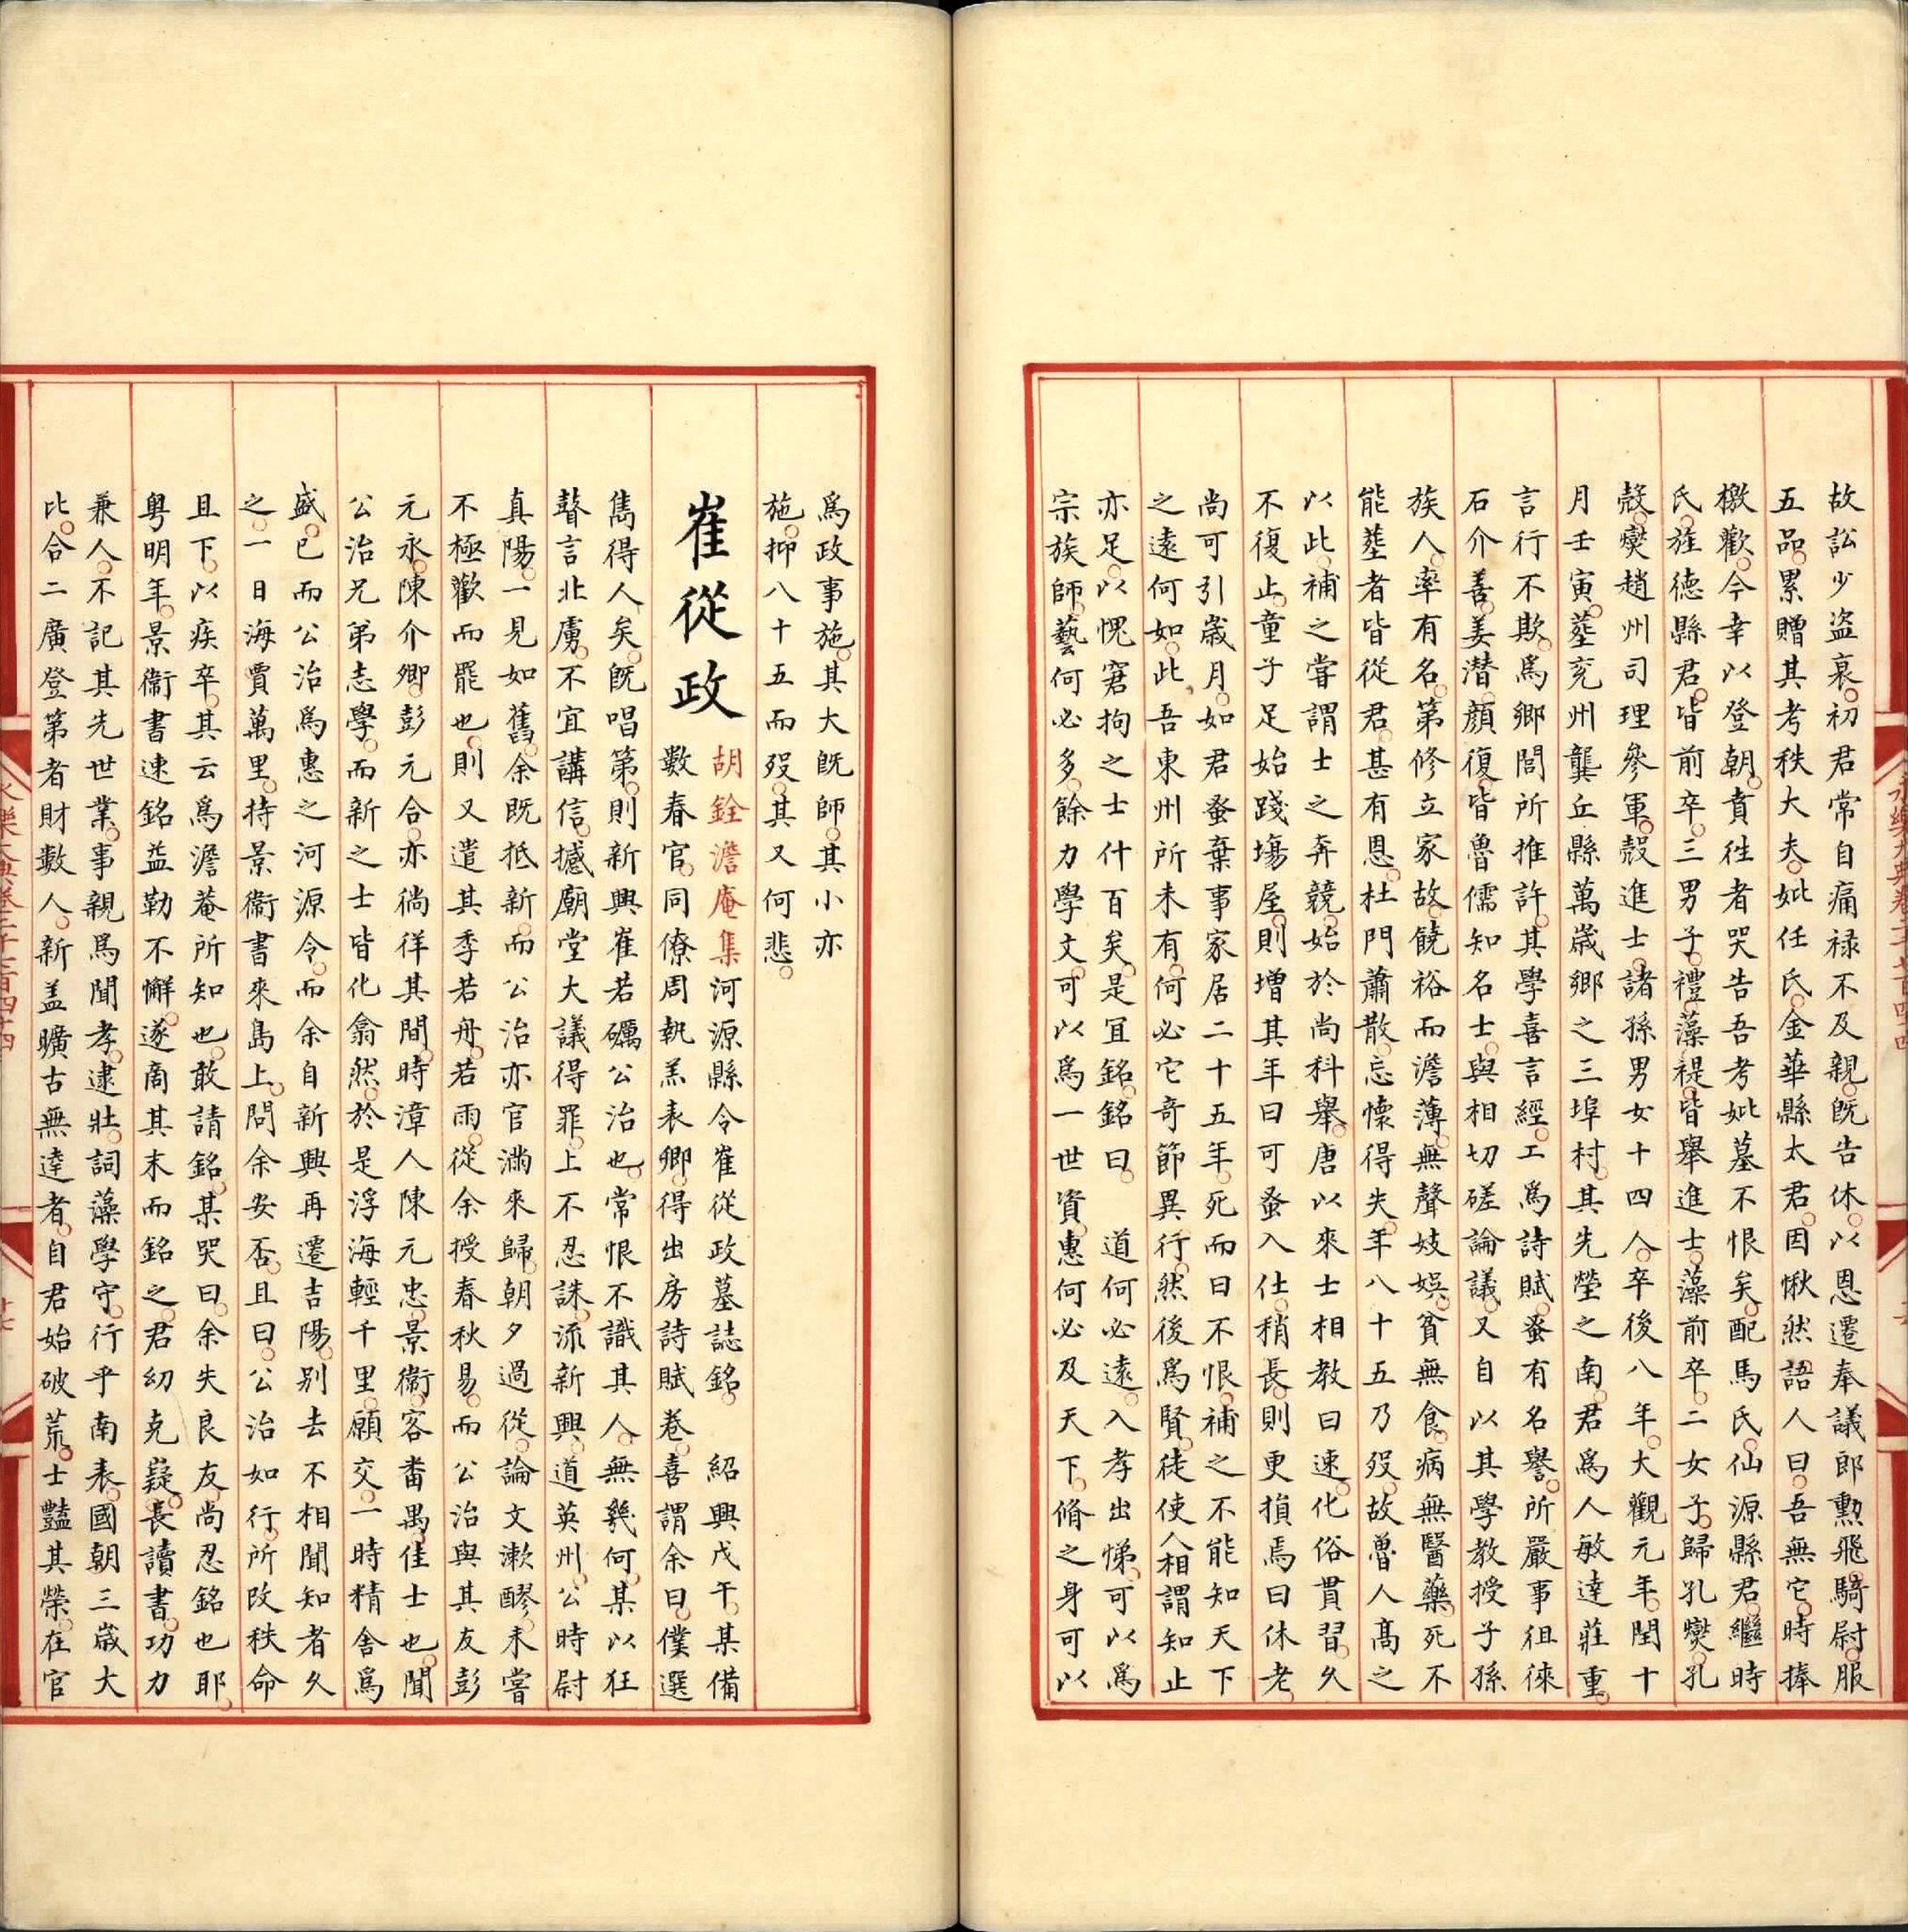 故訟少盜衰初君常自痛祿不及親既告休以恩遷奉議郎勲飛騎尉服
五品累贈其考秩大夫妣任氏金華縣太君因愀然語人曰吾無它時捧
檄歡今幸以登朝賁徃者哭告吾考妣墓不恨矣配馬氏仙源縣君繼時
氏旌德縣君皆前卒三男子禮藻禔皆舉進士藻前卒二女子歸孔㷼孔
㲄㷼趙州司理參軍㲄進士諸孫男女十四人卒後八年大觀元年閏十
月壬寅塟兖州龔丘縣萬歲鄉之三埠村其先塋之南君爲人敏達莊重
言行不欺爲鄉閭所推許其學喜言經工爲詩賦蚤有名譽所嚴事徂徠
石介善姜潜顔復皆魯儒知名士與相切磋論議又自以其學教授子孫
族人率有名第修立家故饒裕而澹薄無聲妓娛貧無食病無醫藥死不
能塟者皆從君甚有恩杜門蕭散忘懷得失年八十五乃歿故魯人髙之
以此補之甞謂士之奔競始於尚科舉唐以來士相教曰速化俗貫習久
不復止童子足始踐塲屋則增其年曰可蚤入仕稍長則更損焉曰休老
尚可引歲月如君蚤棄事家居二十五年死而曰不恨補之不能知天下
之遠何如此吾東州所未有何必它奇節異行然後爲賢徒使人相謂知止
亦足以愧窘拘之士什百矣是冝銘銘曰　道何必遠入孝出悌可以爲
宗族師藝何必多餘力學文可以爲一世資惠何必及天下脩之身可以
爲政事施其大既師其小亦
施抑八十五而歿其又何悲
崔從政
胡銓澹庵集河源縣令崔從政墓誌銘　紹興戊午某備
數春官同僚周執羔表卿得出房詩賦卷喜謂余曰僕選
雋得人矣既唱第則新興崔若礪公治也常恨不識其人無幾何某以狂
瞽言北虜不宜講信撼廟堂大議得罪上不忍誅流新興道英州公時尉
真陽一見如舊余既抵新而公治亦官滿來歸朝夕過從論文漱醪未嘗
不極歡而罷也則又遣其季若舟若雨從余授春秋易而公治與其友彭
元永陳介卿彭元合亦徜徉其間時漳人陳元忠景衞客畨禺佳士也聞
公治兄弟志學而新之士皆化翕然於是浮海輕千里願交一時精舍爲
盛已而公治爲惠之河源令而余自新興再遷吉陽別去不相聞知者久
之一日海賈萬里持景衞書來島上問余安否且曰公治如行所改秩命
且下以疾卒其云爲澹菴所知也敢請銘某哭曰余失良友尚忍銘也耶
粤明年景衞書速銘益勤不懈遂啇其末而銘之君幼克嶷長讀書功力
兼人不記其先世業事親爲聞孝逮壯詞藻學守行乎南表國朝三歲大
比合二廣登第者財數人新盖曠古無逹者自君始破荒士豔其榮在官